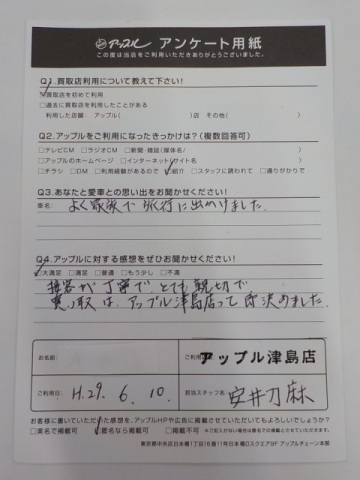 アップル アンケート用紙
この度は当店をご利用いただきありがとうございました。
Q1.買取店利用について教えて下さい!
□買取店を初めて利用
□過去に買取店を利用したことがある
利用した店舗: アップル( )店 その他( )
Q2.アップルをご利用になったきっかけは?(複数回答可)
□テレビCM □ラジオCM □新聞・雑誌(媒体名/ )
□アップルのホームページ □インターネット(サイト名 )
□チラシ □DM □利用経験があるので □紹介 □スタッフに誘われて □通りがかりで
Q3.あなたと愛車との思い出をお聞かせください!
車名: よく家族で旅行に出かけました。
Q4.アップルに対する感想をぜひお聞かせください!
□大満足 □満足 □普通 □もう少し □不満
接客が丁寧で、とても親切で
買取は、アップル津島店って即決めました。
お名前: ご利用 アップル津島店
ご利用日: H.29. 6. 10. 担当スタッフ名: 安井
お客様に書いていただいた感想を、アップルHPや広告に掲載させていただいてもよろしいでしょうか?
□実名で掲載可 □匿名なら掲載可 □掲載不可 ※ご記入がない場合は匿名での掲載とさせていただきます。
東京都中央区日本橋1丁目16番11号日本橋Dスクエア9F アップルチェーン本部